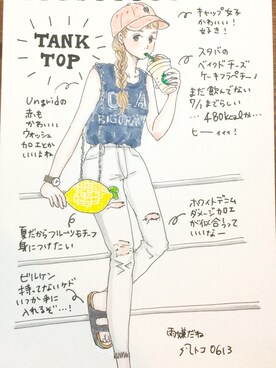 キャップ女子
かわいい!
好き!
TANK
TOP
スタバの
ベイクドチーズ
ケーキフラペチーノ
まだ飲んでない
7/1までらしい
...480kcalか...
ヒー ィィィ!
Ungridの
赤も
かわいい
ウォッシュ
カロエとか
いいよね
ホワイトデニム
ダメージカロエ
が似合うって
いいなー
夏だからフルーツモチーフ
身につけたい
ビルケン
持ってないケド
いつか手に
入れるぞ...!
雨嫌だね
0613